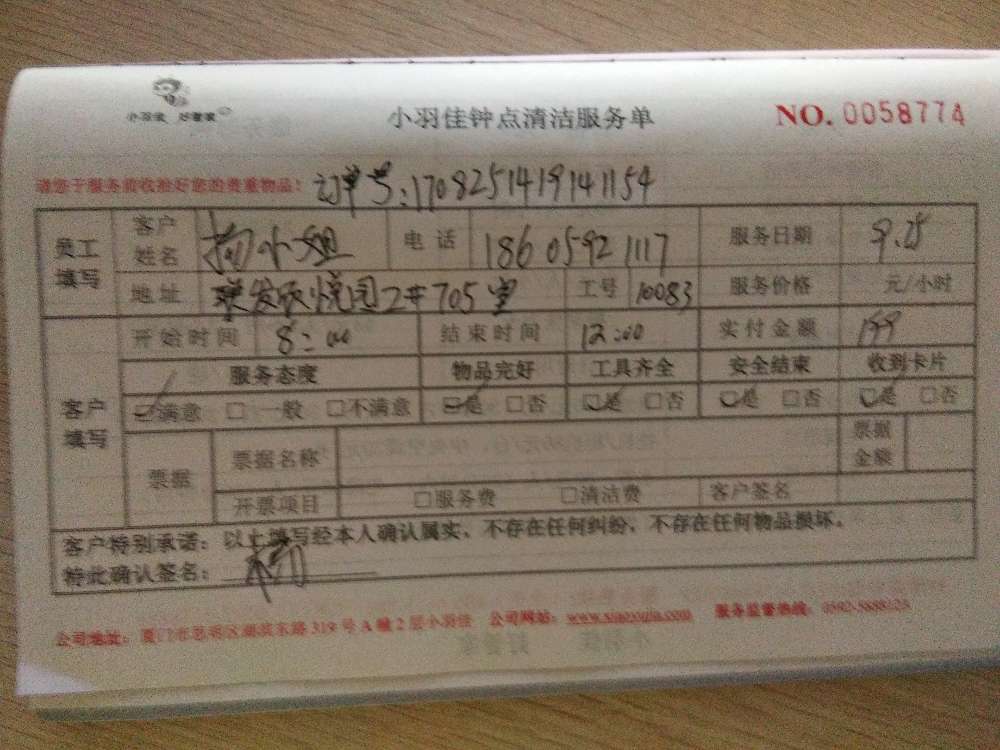 小羽佳 好管家
小羽佳钟点清洁服务单
NO. 0058774
请您于服务前收拾好您的贵重物品!
订单号:170825141914 1154
员工填写 客户姓名 杨小姐 电话 186 0592 1117 服务日期 9.25
地址 联发欣悦园2#705室 工号 10083 服务价格 元/小时
客户填写 开始时间 8:00 结束时间 12:00 实付金额 199
服务态度 物品完好 工具齐全 安全结束 收到卡片
☑满意 □一般 □不满意 ☑是 □否 ☑是 □否 ☑是 □否 ☑是 □否
票据 票据名称 票据金额
开票项目 □服务费 □清洁费 客户签名
客户特别承诺:以上填写经本人确认属实、不存在任何纠纷,不存在任何物品损坏。
特此确认签名: 杨
公司地址:厦门市思明区湖滨东路319号A幢2层小羽佳 公司网站:www.xiaoyujia.com 服务监督热线:0592-5888125